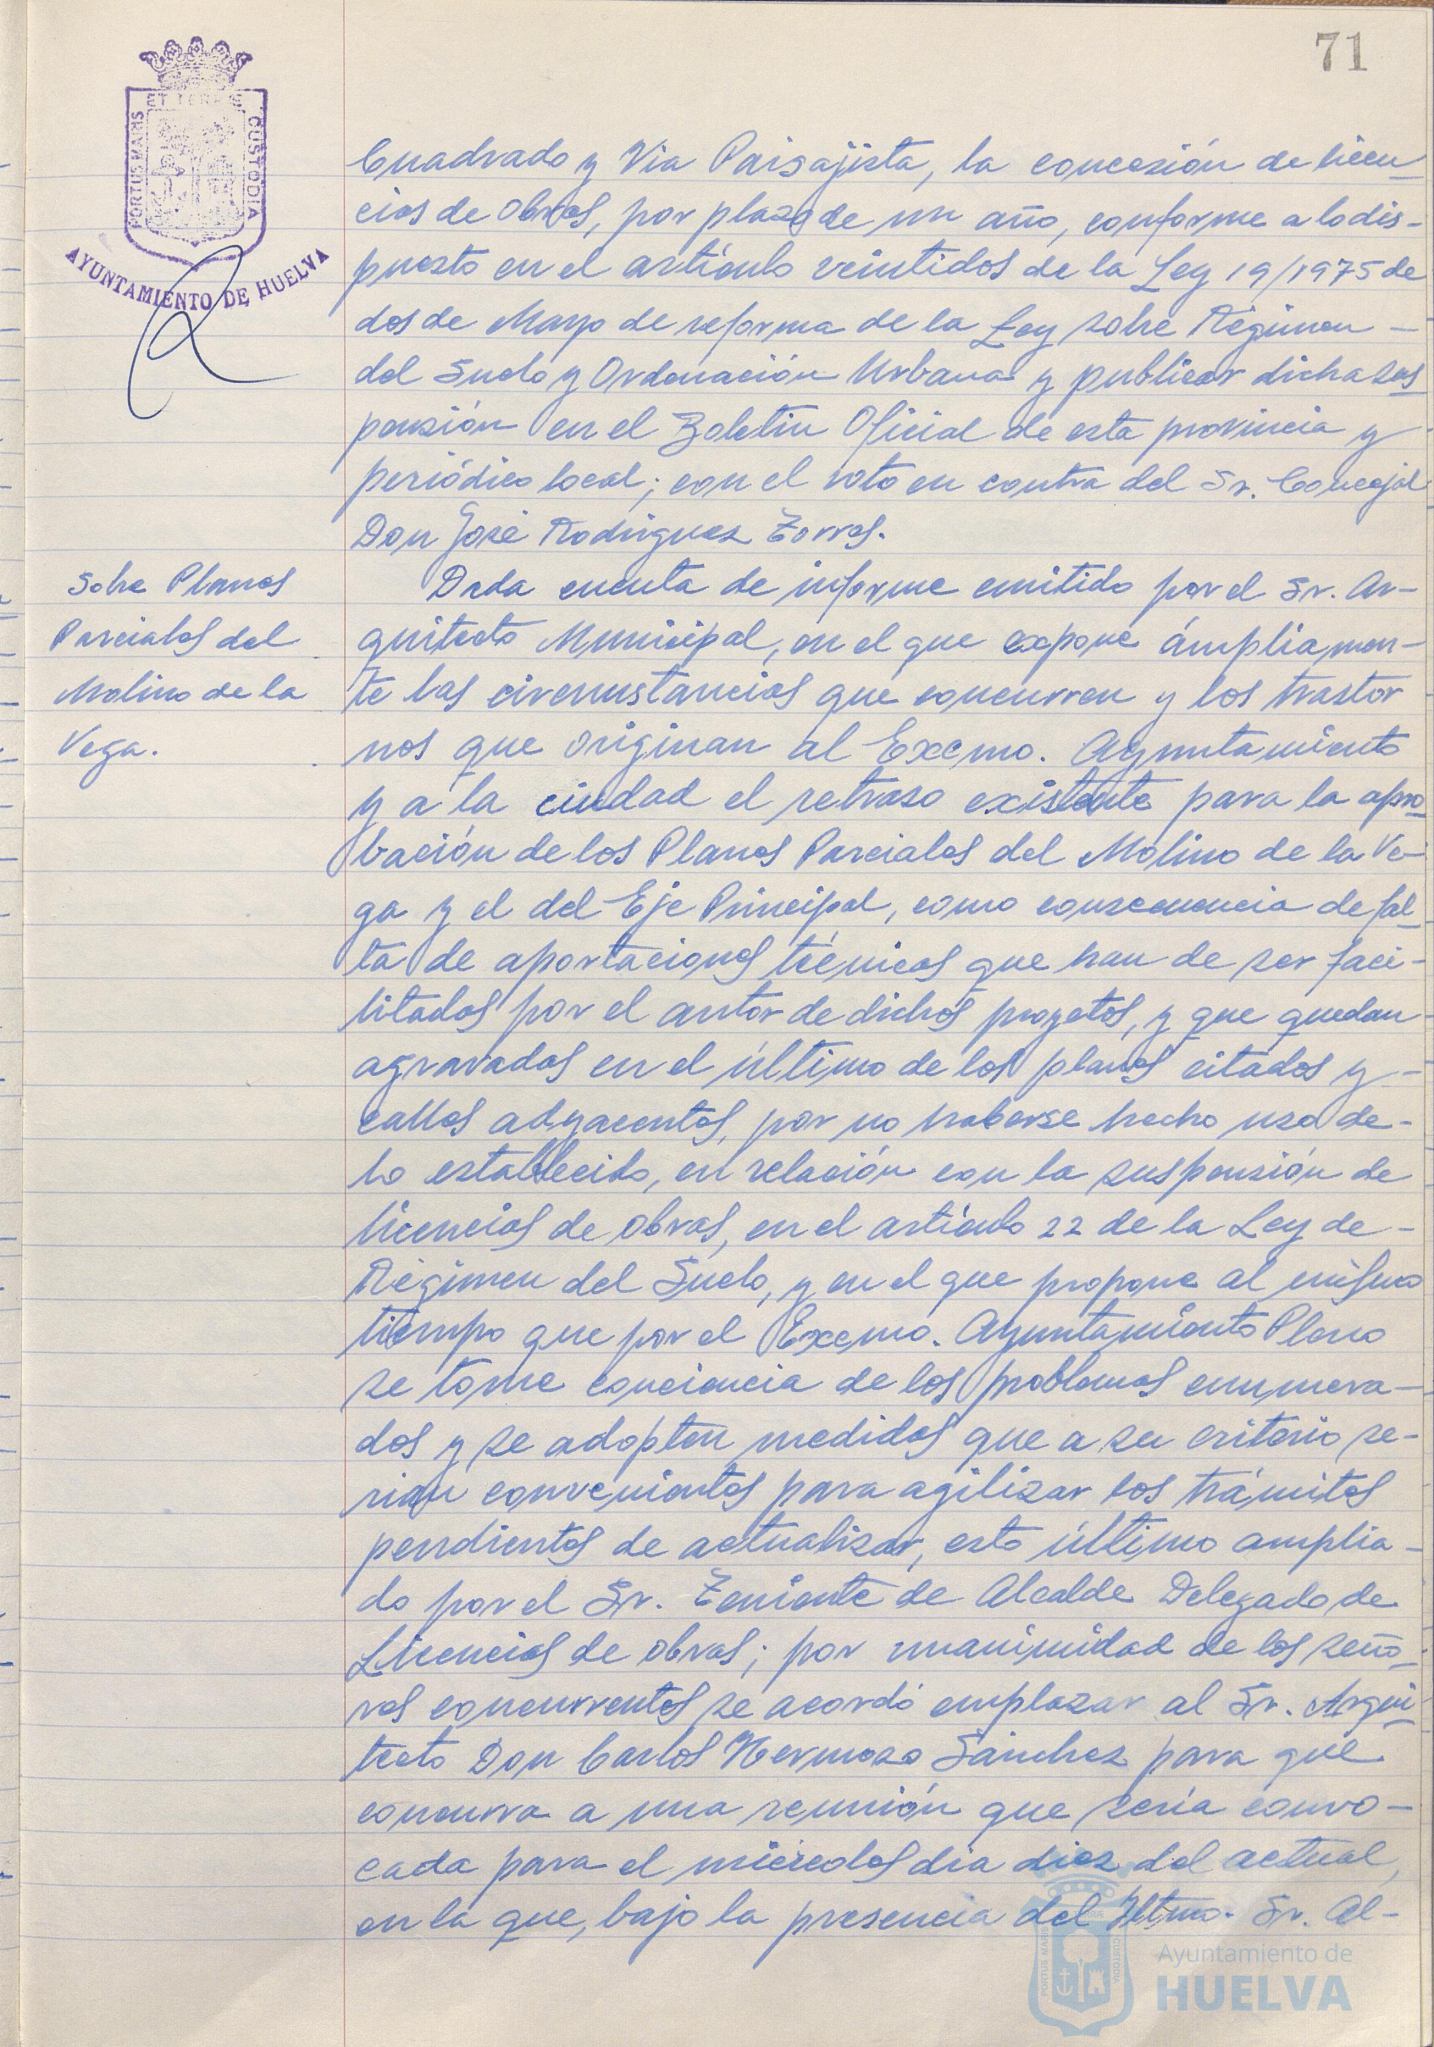 71
PORTUS MARIS ET TERRÆ CUSTODIA
AYUNTAMIENTO DE HUELVA
Cuadrado y Via Paisajista, la concesión de licen-
cias de obras, por plazo de un año, conforme a lo dis-
puesto en el artículo veintidos de la Ley 19/1975 de
dos de Mayo de reforma de la Ley sobre Régimen -
del Suelo y Ordenación Urbana y publicar dicha sus-
pensión en el Boletin Oficial de esta provincia y
periódico local; con el voto en contra del Sr. Concejal
Don José Rodriguez Torres.
Sobre Planes
Parciales del
Molino de la
Vega.
Dada cuenta de informe emitido por el Sr. Ar-
quitecto Municipal, en el que expone ámpliamen-
te las circunstancias que concurren y los trastor
nos que originan al Excmo. Ayuntamiento
y a la ciudad el retraso existente para la apro-
bación de los Planes Parciales del Molino de la Ve-
ga y el del Eje Principal, como consecuencia de fal-
ta de aportaciones técnicas que han de ser faci-
litadas por el autor de dichos proyetos, y que quedan
agravados en el último de los planes citados y -
calles adyacentes, por no haberse hecho uso de-
lo establecido, en relación con la suspensión de
licencias de obras, en el artículo 22 de la Ley de -
Régimen del Suelo, y en el que propone al mismo
tiempo que por el Excmo. Ayuntamiento Pleno
se tome conciencia de los problemas enumera-
dos y se adopten medidas que a su criterio se-
rian convenientes para agilizar los trámites
pendientes de actualizar, esto último amplia-
do por el Sr. Teniente de Alcalde Delegado de
Licencias de obras; por unanimidad de los seño-
res concurrentes se acordó emplazar al Sr. Arqui-
tecto Don Carlos Hermoso Sánchez para que
concurra a una reunión que sería convo-
cada para el miércoles dia diez del actual,
en la que, bajo la presencia del Iltmo. Sr. Al-
Ayuntamiento de
HUELVA